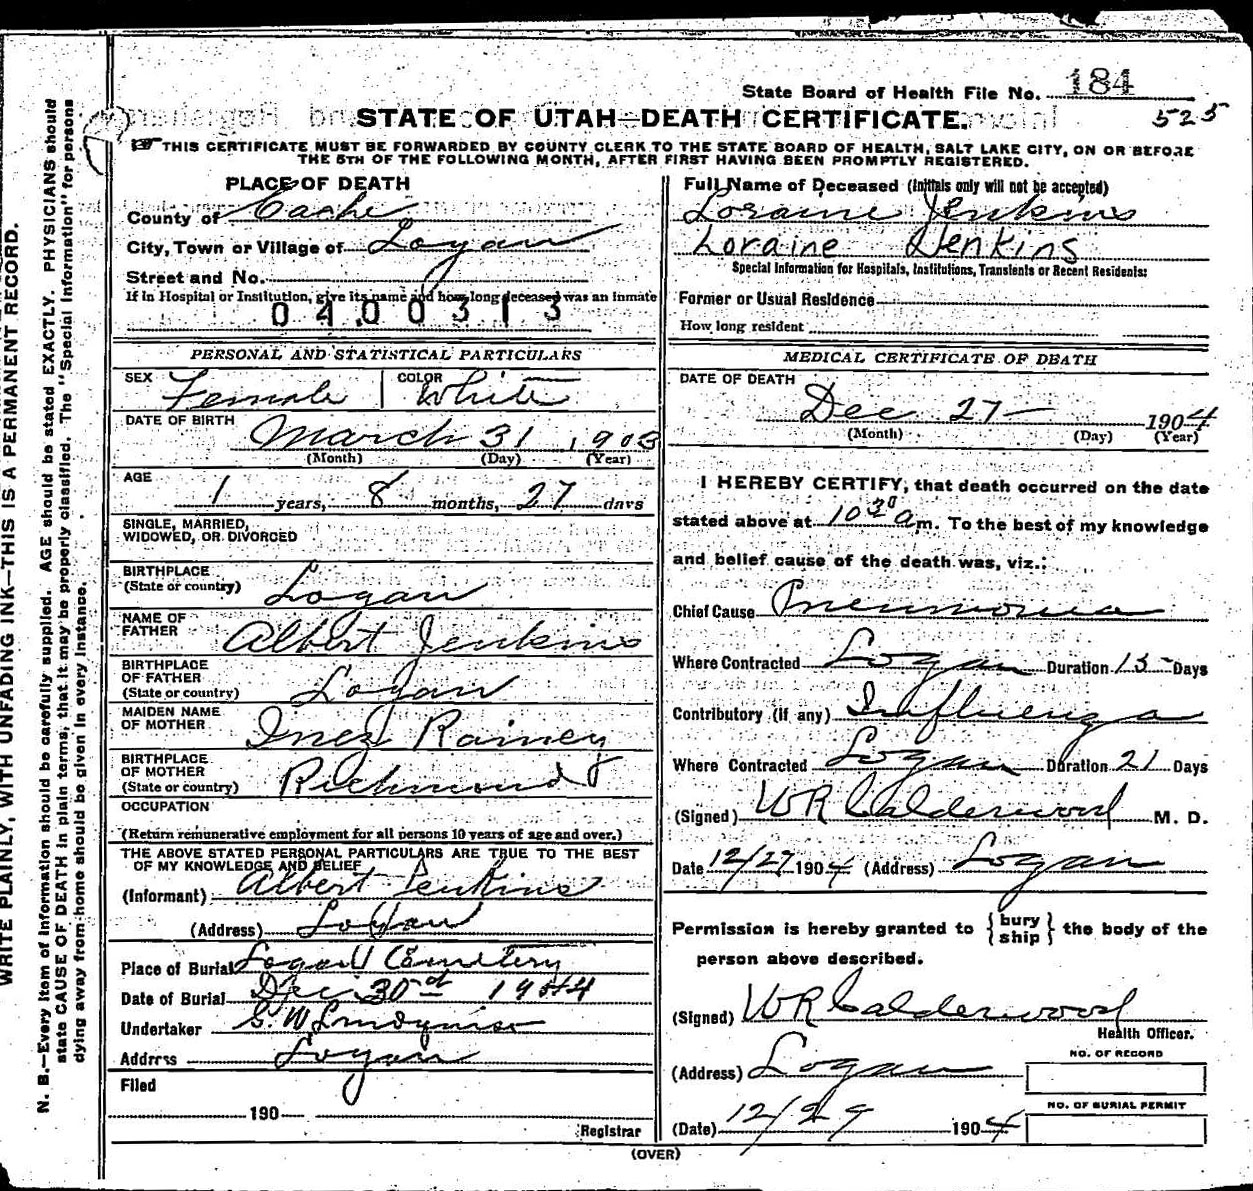 State Board of Health File No. 184
525
STATE OF UTAH—DEATH CERTIFICATE.
THIS CERTIFICATE MUST BE FORWARDED BY COUNTY CLERK TO THE STATE BOARD OF HEALTH, SALT LAKE CITY, ON OR BEFORE
THE 5TH OF THE FOLLOWING MONTH, AFTER FIRST HAVING BEEN PROMPTLY REGISTERED.
WRITE PLAINLY, WITH UNFADING INK—THIS IS A PERMANENT RECORD.
N. B.—Every item of information should be carefully supplied. AGE should be stated EXACTLY. PHYSICIANS should
state CAUSE OF DEATH in plain terms, that it may be properly classified. The "Special Information" for persons
dying away from home should be given in every instance.
PLACE OF DEATH
County of Cache
City, Town or Village of Logan
Street and No.
If in Hospital or Institution, give its name and how long deceased was an inmate
0400313
PERSONAL AND STATISTICAL PARTICULARS
SEX Female COLOR White
DATE OF BIRTH March 31, 1903
(Month) (Day) (Year)
AGE
1 years, 8 months, 27 days
SINGLE, MARRIED,
WIDOWED, OR DIVORCED
BIRTHPLACE
(State or country) Logan
NAME OF
FATHER Albert Jenkins
BIRTHPLACE
OF FATHER
(State or country) Logan
MAIDEN NAME
OF MOTHER Inez Rainey
BIRTHPLACE
OF MOTHER
(State or country) Richmond
OCCUPATION
(Return remunerative employment for all persons 10 years of age and over.)
THE ABOVE STATED PERSONAL PARTICULARS ARE TRUE TO THE BEST
OF MY KNOWLEDGE AND BELIEF
(Informant) Albert Jenkins
(Address) Logan
Place of Burial Logan Cemetery
Date of Burial Dec 30 1904
Undertaker G. W. Lindquist
Address Logan
Filed
190
Registrar
Full Name of Deceased (initials only will not be accepted)
Loraine Jenkins
Loraine Jenkins
Special Information for Hospitals, Institutions, Transients or Recent Residents:
Former or Usual Residence
How long resident
MEDICAL CERTIFICATE OF DEATH
DATE OF DEATH
Dec 27— 1904
(Month) (Day) (Year)
I HEREBY CERTIFY, that death occurred on the date
stated above at 10 30 a m. To the best of my knowledge
and belief cause of the death was, viz.:
Chief Cause Pneumonia
Where Contracted Logan Duration 15 Days
Contributory (if any) Influenza
Where Contracted Logan Duration 21 Days
(Signed) WR Calderwood M. D.
Date 12/27 1904 (Address) Logan
Permission is hereby granted to { bury ship } the body of the
person above described.
(Signed) WR Calderwood
Health Officer.
(Address) Logan
NO. OF RECORD
(Date) 12/29 1904
NO. OF BURIAL PERMIT
(OVER)